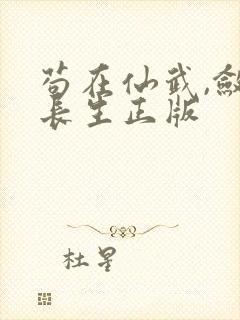 苟在仙武,敛
长生正版
杜星